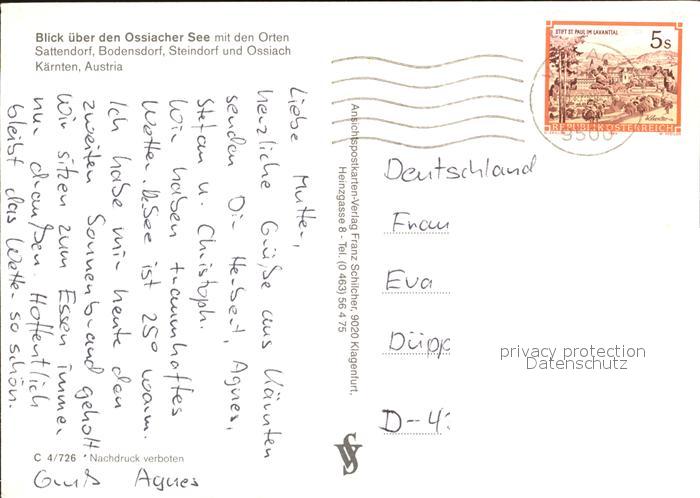 Blick über den Ossiacher See mit den Orten
Sattendorf, Bodensdorf, Steindorf und Ossiach
Kärnten, Austria
STIFT ST. PAUL IM LAVANTTAL
5s
REPUBLIK ÖSTERREICH
Liebe Mutter,
herzliche Grüße aus Kärnten
senden Dir Herbert, Agnes,
Stefan u. Christoph.
Wir haben traumhaftes
Wetter. D. See ist 25° warm.
Ich habe mir heute den
zweiten Sonnenbrand geholt
Wir sitzen zum Essen immer
nur draußen. Hoffentlich
bleibt das Wetter so schön.
Gruß Agnes
C 4/726 * Nachdruck verboten
Ansichtspostkarten-Verlag Franz Schilcher, 9020 Klagenfurt,
Heinzgasse 8 - Tel. (0 463) 56 4 75
Deutschland
Frau
Eva
Düpp
D-4
privacy protection
Datenschutz